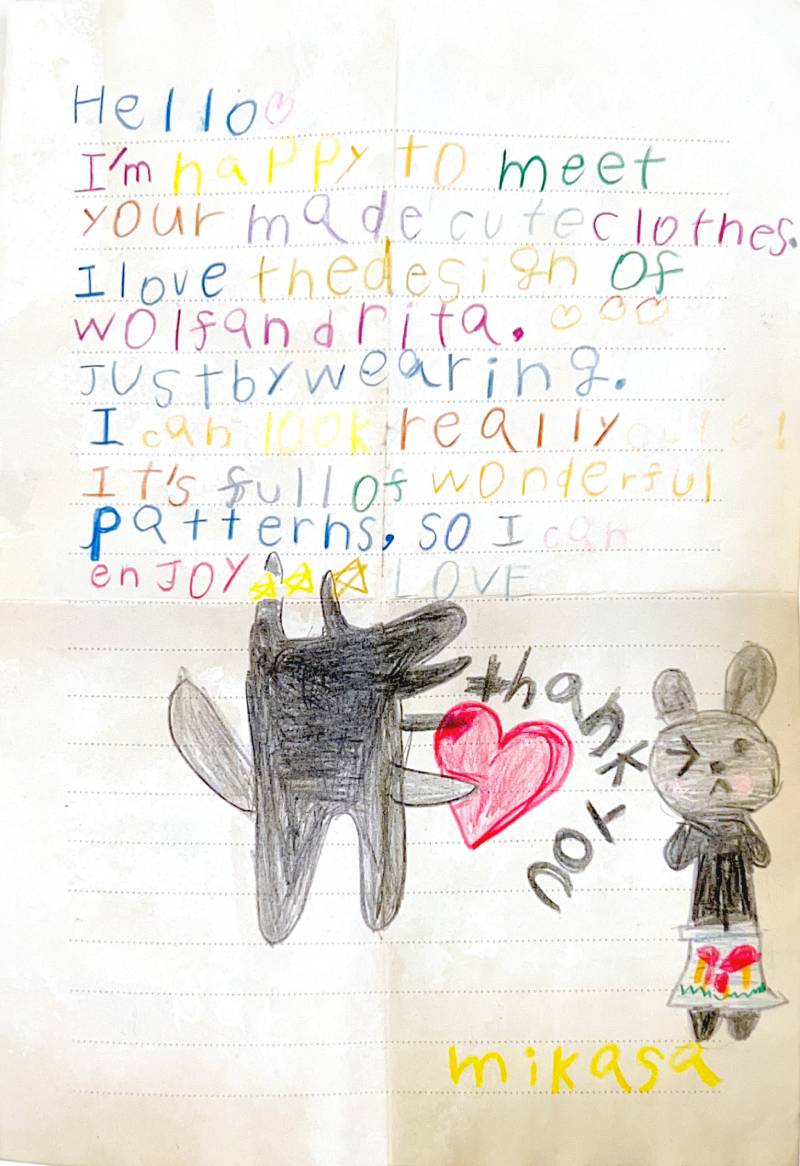 Hello♡
I'm happy to meet
your made cute clothes.
I love the design of
wolfandrita. ♡♡♡
Just by wearing.
I can look really cute!
It's full of wonderful
patterns, so I can
enJOY☆☆☆ LOVE
thank
YOU
mikasa